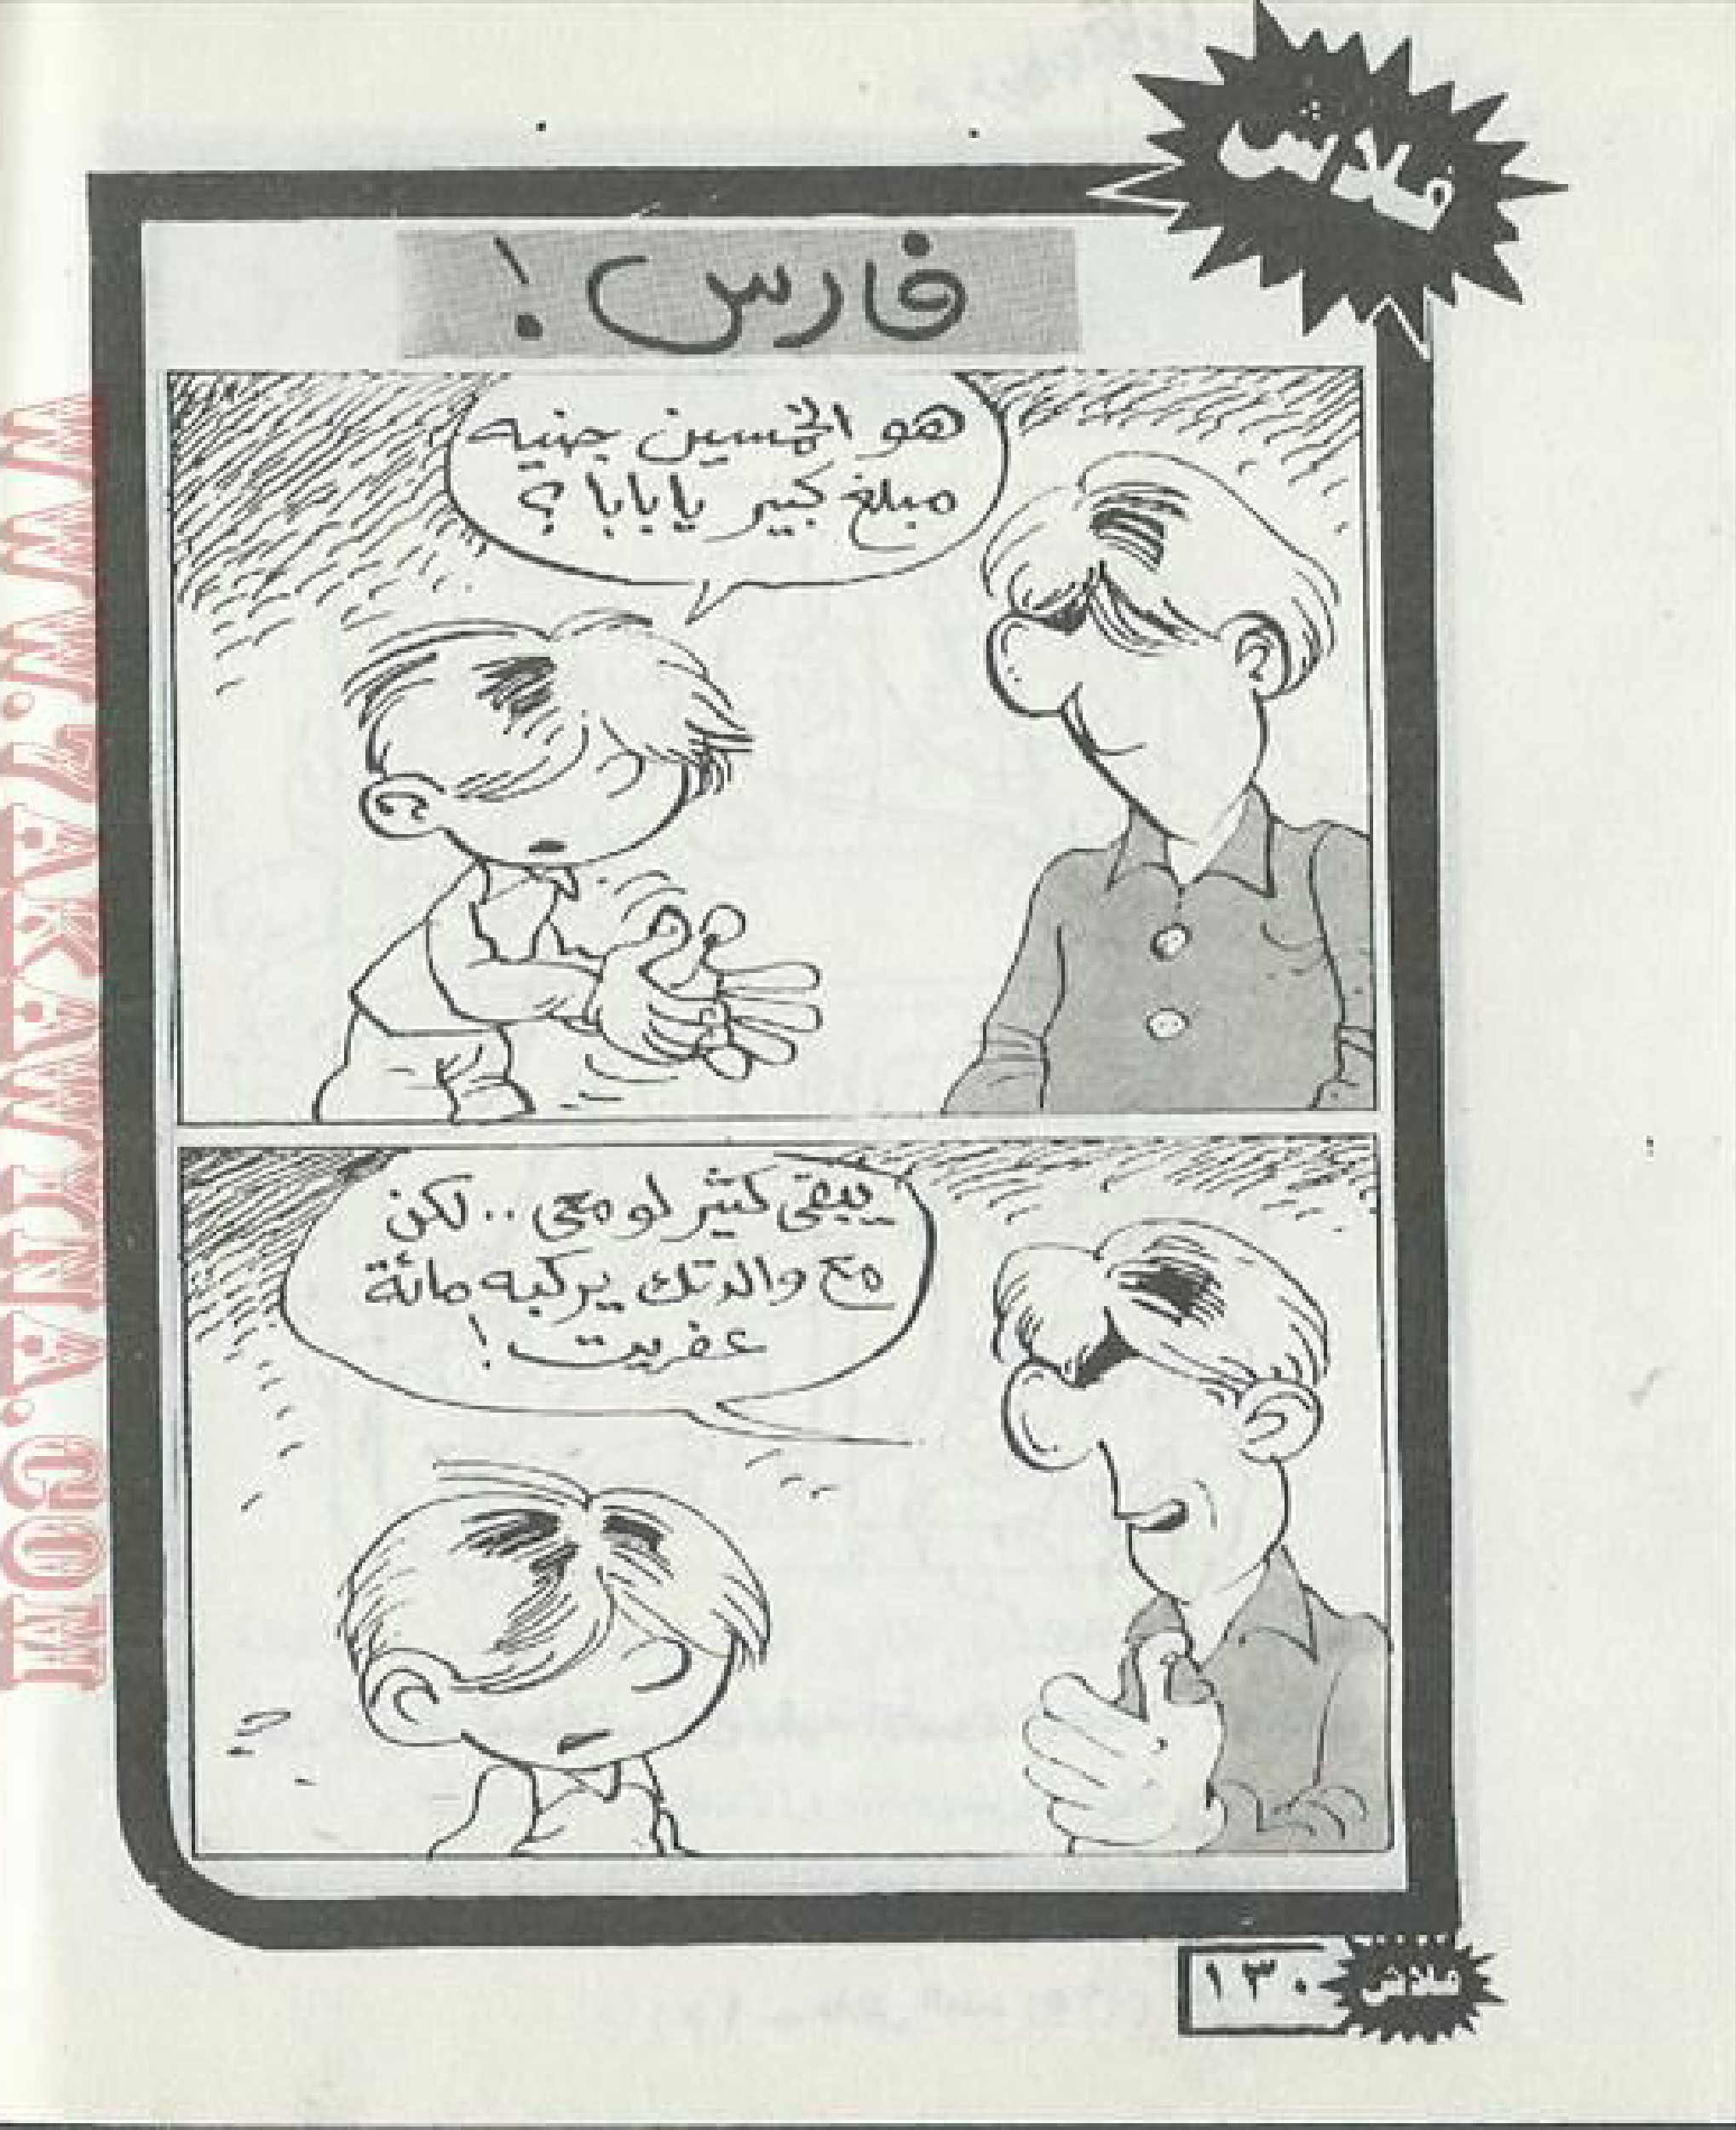 فلاش
فارس!
هو الخمسين جنيه
مبلغ كبير يا بابا؟
يبقى كتير لو معى .. لكن
مع والدتك يركبه مائة
عفريت!
فلاش ١٣٠
WWW.7AKAWINNA.COM